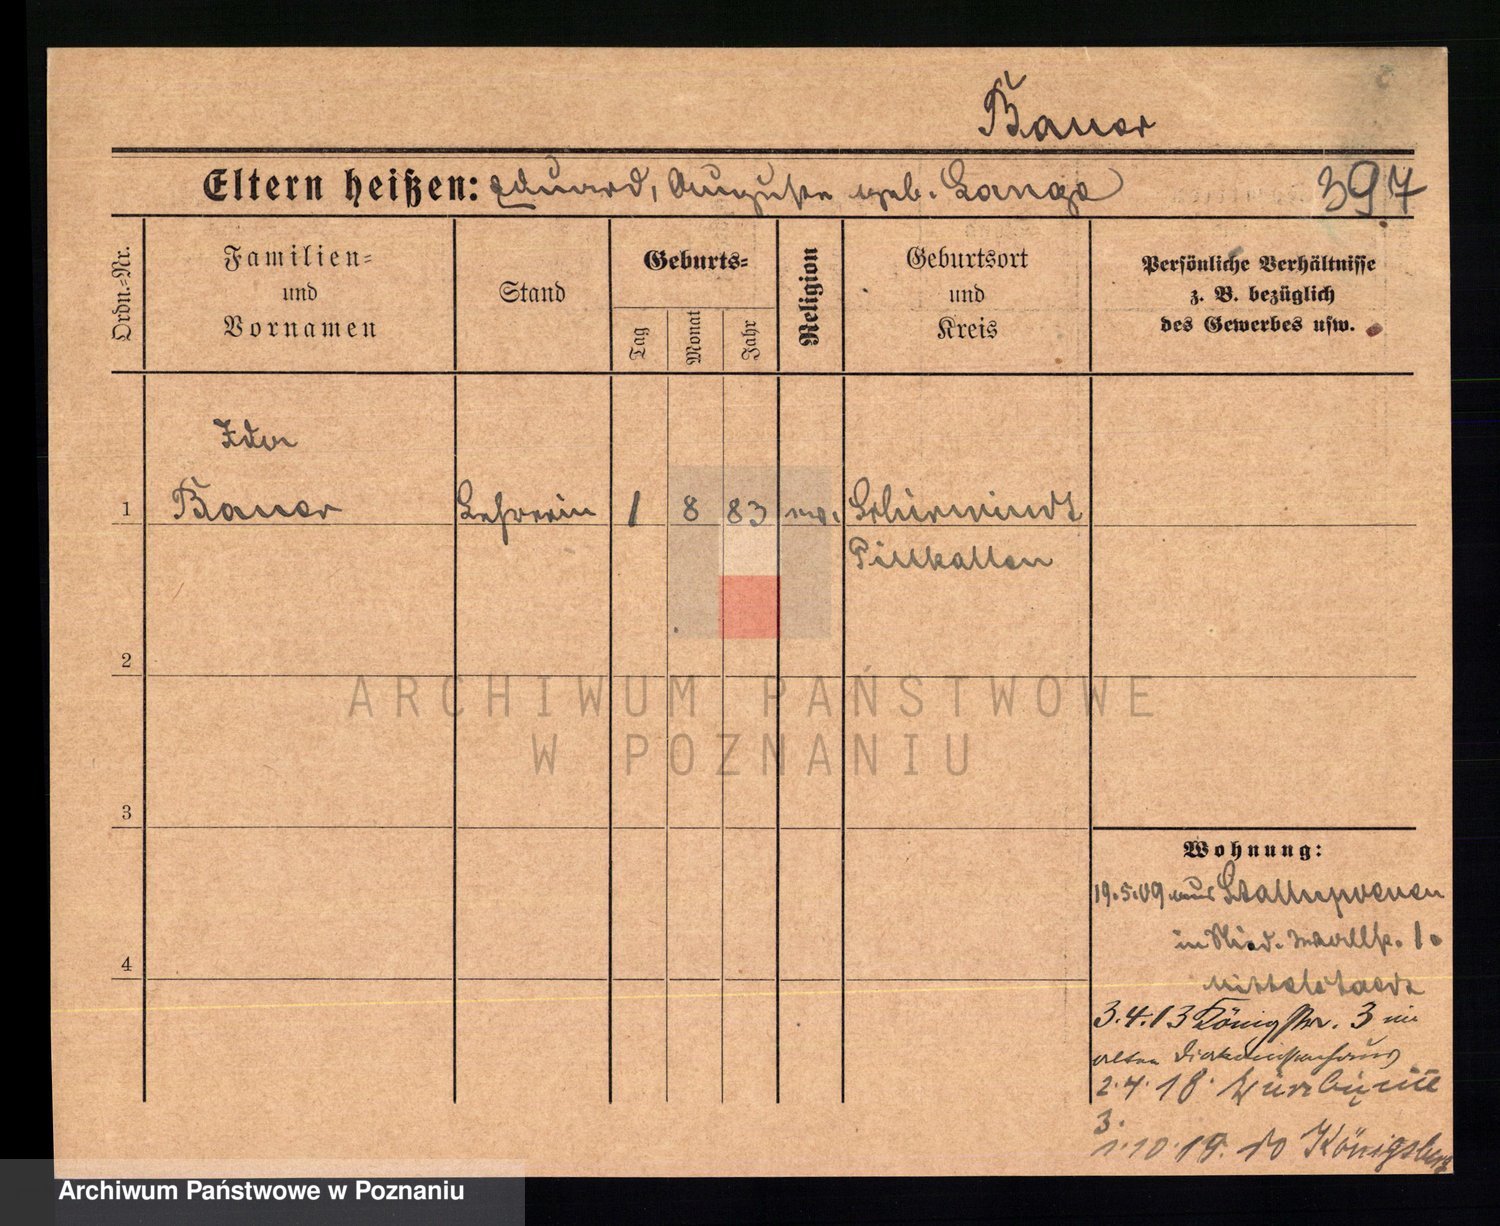 Bauer
Eltern heißen: Eduard, Auguste geb. Lange 397
Ordn.-Nr.
Familien-
und
Vornamen
Stand
Geburts-
Tag
Monat
Jahr
Religion
Geburtsort
und
Kreis
Persönliche Verhältnisse
z. B. bezüglich
des Gewerbes usw.
Ida
1 Bauer Lehrerin 1 8 83 ev. Schirwindt
Pillkallen
2
3
4
Wohnung:
19.5.09 aus Stallupoenen
in Nied. Wallstr. 1.
Mittelstaedt
3.4.13 Königstr. 3 im
alten Diakonissenhaus
2.4.18
3.
1.10.19. Königsberg
ARCHIWUM PAŃSTWOWE
W POZNANIU
Archiwum Państwowe w Poznaniu